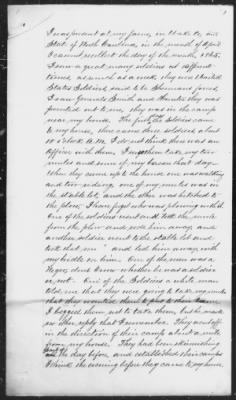 I was present at my farm, in Wake Co, in
State of North Carolina in the month of April
I cannot recollect the day of the month, 1865.
I saw a great many soldiers at different
times as much as a week, they was United
States Soldiers, said to be Shermans forces.
I saw Generals Smith and
pointed out to me, they was in the camp
near my house. The first the Soldiers came
to my house, there came three soldiers about
10 o'clock A.M. I do not think there was an
officer with them. I saw them take my two
mules and some of my bacon that day
When they came up to the house one was walking
and two riding. one of my mules was in
the stable lot, and the other was hitched to
the plow, I have forgot who was plowing with it
One of the soldiers went and took the mule
from the plow and rode him away, and
another soldier went to the stable lot and
took that one and led him away with
my bridle on him. One of the men was a
Negro, dont know whether he was a soldier
or not. One of the Soldiers a white man
told me that they were going to take my mules
that they wanted them
I begged them not to take them, but he made
no other reply that I remember. They went off
in the direction of their camp about a mile
from my house. They had been skirmishing
the day before and established their camps
I think the evening before they came to my house